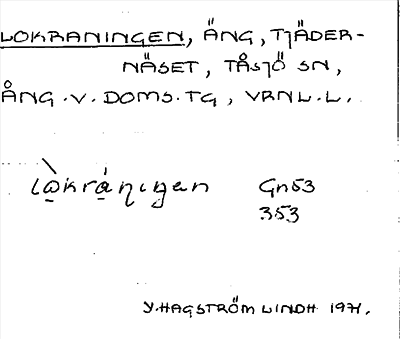 LOKRANINGEN, ÄNG, TJÄDER-
NÄSET, TÅSJÖ SN,
ÅNG.V.DOMS.TG, VRNL.L.
lòkráṇıŋən Gn53
353
Y.HAGSTRÖM LINDH 1971.